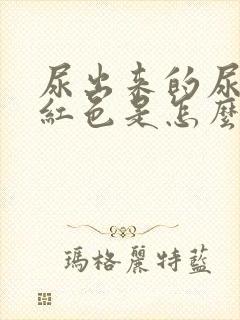 尿出来的尿
紅色是怎麼
瑪格麗特藍